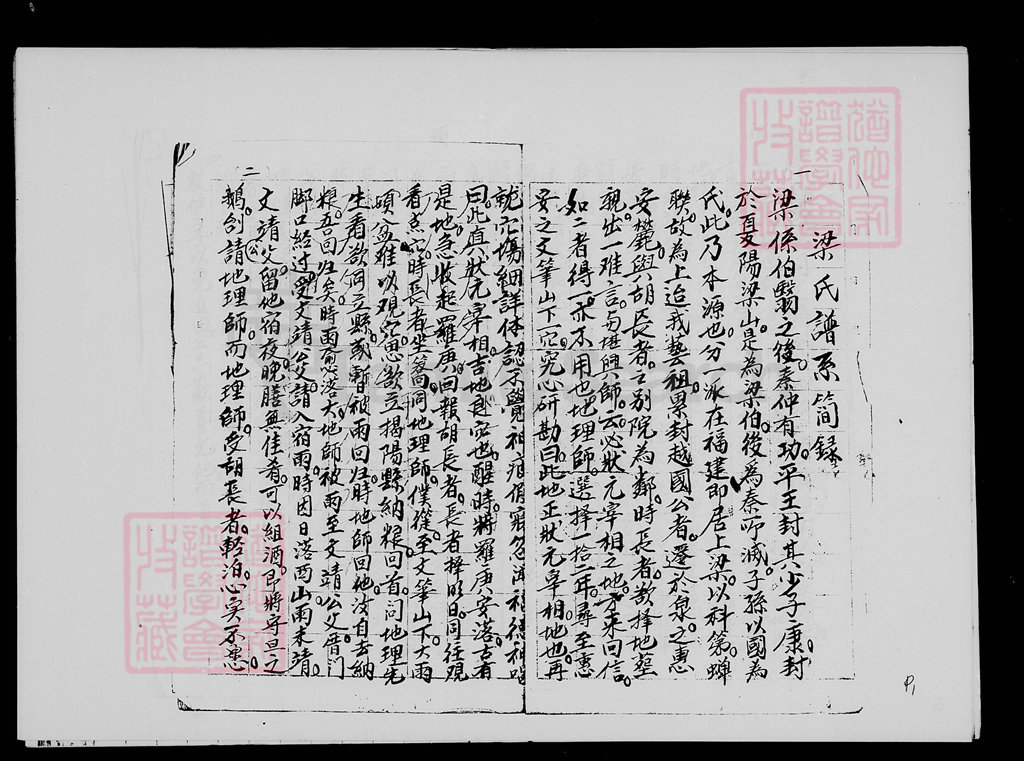 一
梁氏譜系簡錄
梁係伯翳之後。秦仲有功。平王封其少子康封
於夏陽梁山。是為梁伯。後為秦所滅。子孫以國為
氏。此乃本源也。分一派在福建。即居上梁。以科第蟬
聯。故為上追我藝祖。累封越國公者。遷於泉之惠
安。與胡長者之別院為鄰。時長者欲擇地塋
親。出一难言。与堪輿師。云必狀元宰相之地。方來回信。
如二者得一。亦不用也。地理師。選擇一拾二年。尋至惠
安之文筆山下一穴。究心研勘。曰此地正狀元宰相地也。再
就穴場細詳体認。不覺神疲。
曰。此直狀元宰相吉地真穴也。醒時。將羅庚安落。古有
是地。急收起羅庚。回報胡長者。長者擇明日。同往現
看点穴。時長者坐轎同地理師。僕從至文筆山下。大雨
傾盆。难以观穴。忽欲立揭陽縣納粮。回首。问地理先
生看欲同立縣或暫被雨回归。時地師回他汝自去納
粮。吾回归矣。時雨愈落大。地師被雨至文靖公父厝门
脚口經过。受文靖公父請入宿雨。時因日落西山雨未靖。
文靖父留他宿夜。晚膳無佳肴。可以組酒。即將字旦之
鵝刣請地理師。而地理師。受胡長者。輕泊。心实不悉。
(二)
P1